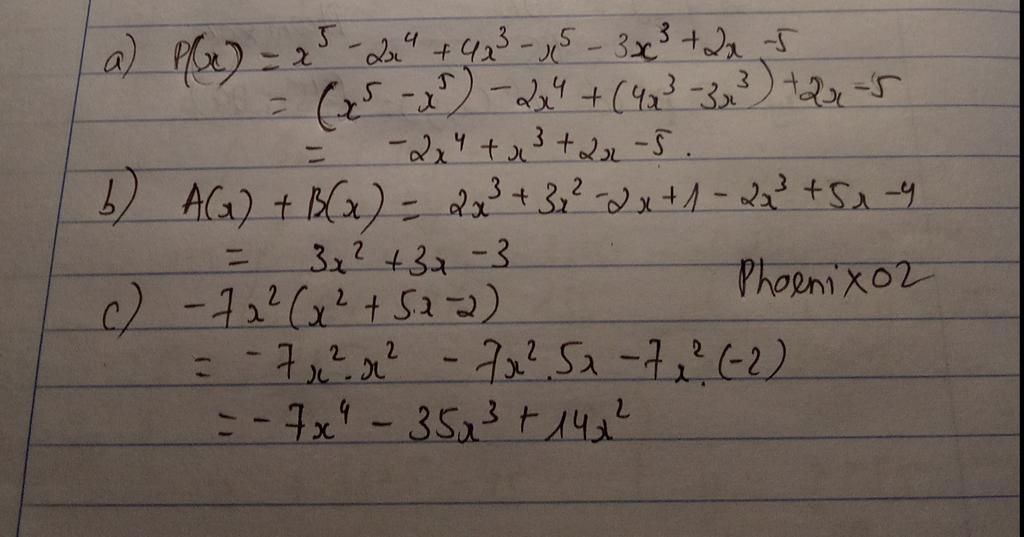 a) P(x) = x⁵ - 2x⁴ + 4x³ - x⁵ - 3x³ + 2x - 5
= (x⁵ - x⁵) - 2x⁴ + (4x³ - 3x³) + 2x - 5
= -2x⁴ + x³ + 2x - 5.
b) A(x) + B(x) = 2x³ + 3x² - 2x + 1 - 2x³ + 5x - 4
= 3x² + 3x - 3
Phoenix02
c) -7x² (x² + 5x - 2)
= -7x².x² - 7x².5x - 7x².(-2)
= -7x⁴ - 35x³ + 14x²